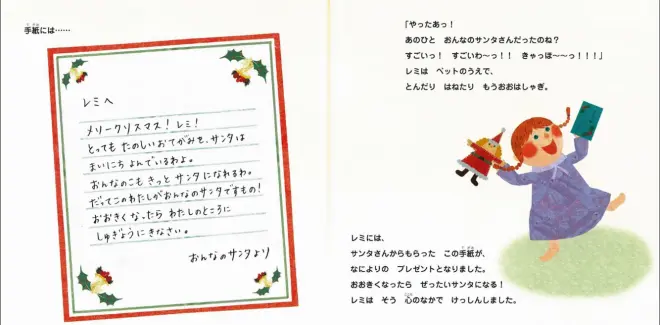 手紙には……
レミへ
メリークリスマス! レミ!
とっても たのしいおてがみを、サンタは
まいにち よんでいるわよ。
おんなのこも きっと サンタになれるわ。
だってこのわたしがおんなのサンタですもの!
おおきくなったら わたしのところに
しゅぎょうにきなさい。
おんなのサンタより
「やったあっ!
あのひと おんなのサンタさんだったのね?
すごいっ! すごいわ〜っ!! きゃっほ〜〜っ!!!」
レミは ベットのうえで、
とんだり はねたり もうおおはしゃぎ。
レミには、
サンタさんからもらった この手紙が、
なによりの プレゼントとなりました。
おおきくなったら ぜったいサンタになる!
レミは そう 心のなかで けっしんしました。